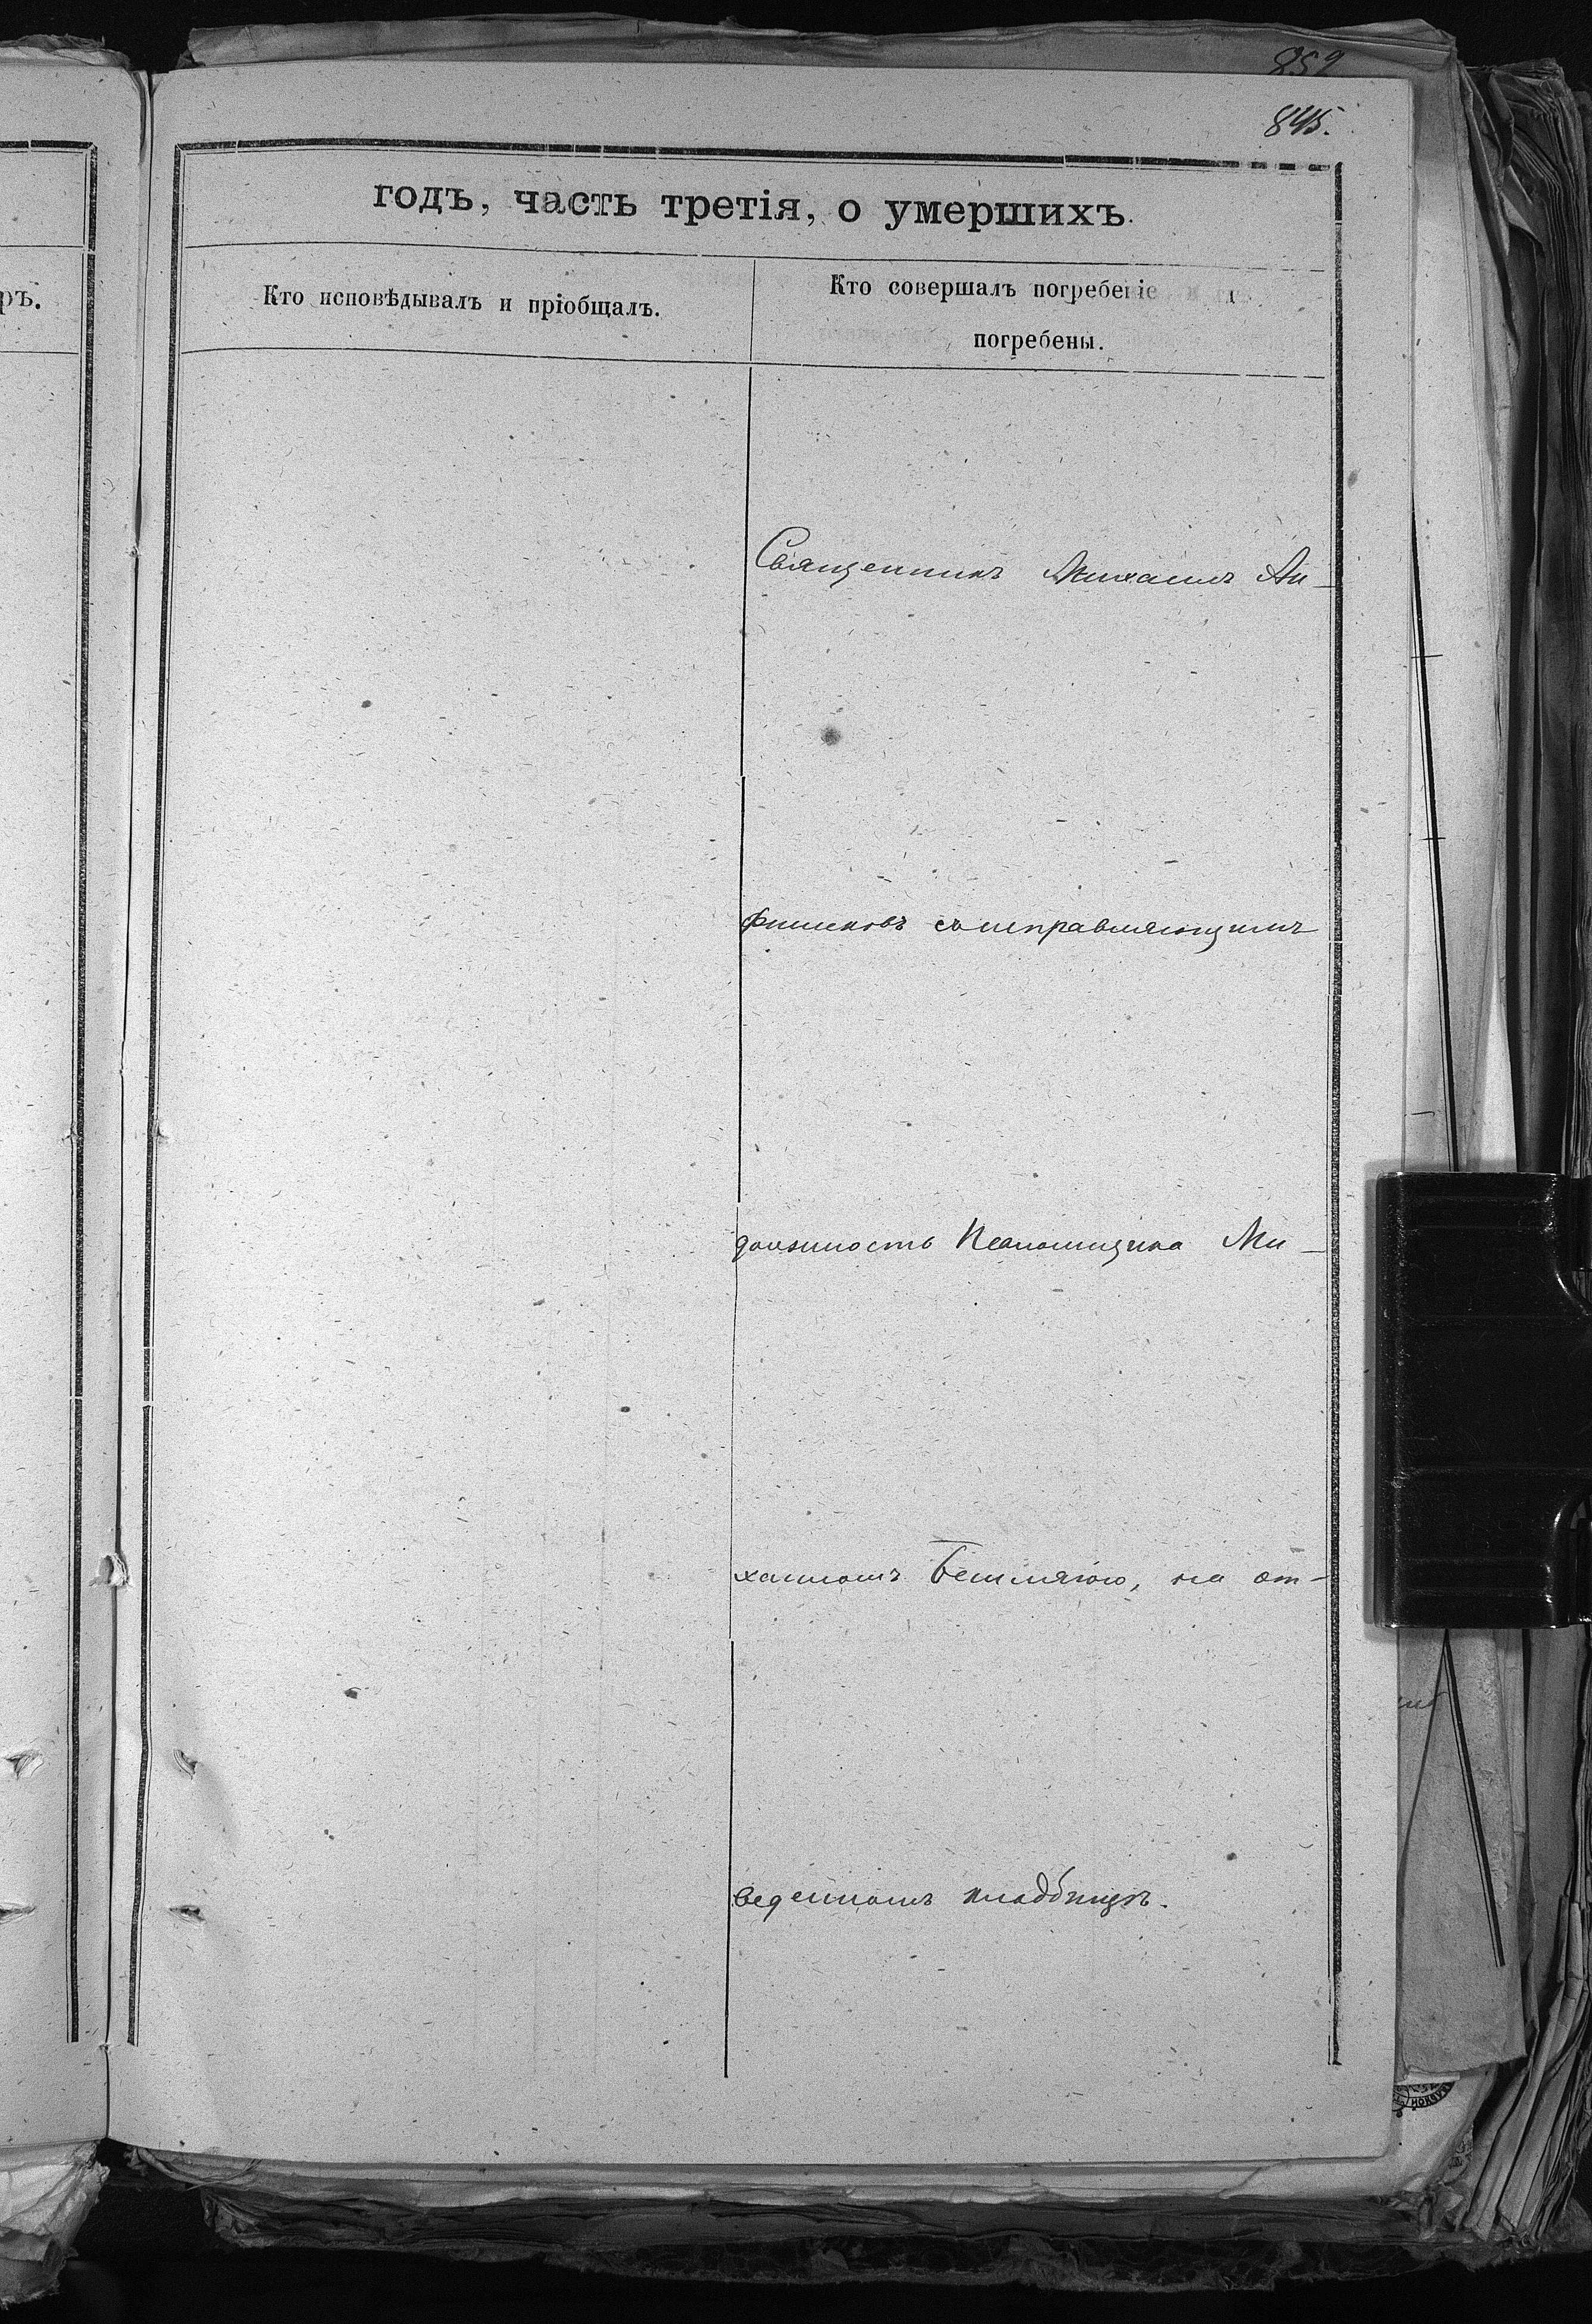 852
845.
годъ, часть третія, о умершихъ.
ръ.
Кто исповѣдывалъ и пріобщалъ.
Кто совершалъ погребеніе
погребены.
Священникъ Михаилъ Ан-
съ исправляющимъ
должность Псаломщика Ми-
хаиломъ на от-
веденномъ кладбищѣ.